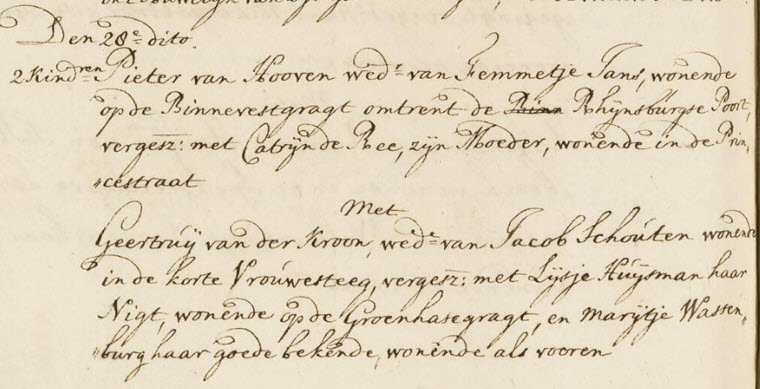 Den 28e dito.
2 Kindren Pieter van Hooven wedr van Femmetje Jans, wonende
op de Binnevestgragt omtrent de Binn Rhijnsburgse Poort,
vergesz: met Catrijn de Ree, zijn Moeder, wonende in de Prin„
„cestraat
Met
Geertruij van der Kroon, wede van Jacob Schouten wonende
in de korte Vrouwesteeg, vergesz: met Lijsje Huijsman haar
Nigt, wonende op de Groenhasegragt, en Marijtje Wassen„
„burg haar goede bekende, wonende als vooren